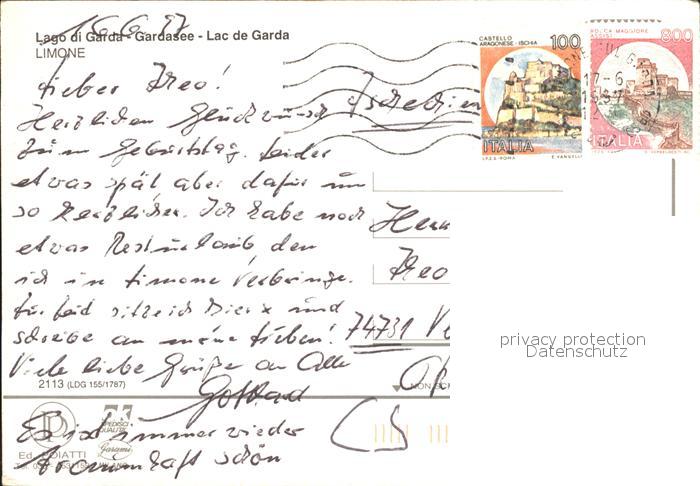 16.6.97
Lago di Garda - Gardasee - Lac de Garda
LIMONE
CASTELLO
ARAGONESE - ISCHIA
100
ROCCA MAGGIORE
ASSISI
800
ITALIA
I.P.Z.S. - ROMA E. VANGELLI
ITALIA
17-6
Lieber Theo!
Herzlichen Glückwunsch
zum Geburtstag. Leider
etwas spät aber dafür um
so herzlicher. Ich habe noch
etwas Resturlaub den
ich in Limone verbringe.
Zur Zeit sitze ich Bier x und
schreibe an meine Lieben!
Viele liebe Grüße an Alle
Gotthard
Es ist immer wieder
traumhaft schön
Herrn
Theo
74731
privacy protection
Datenschutz
2113 (LDG 155/1787)
NON SC
SPEDISCI
QUALITA'
Garami